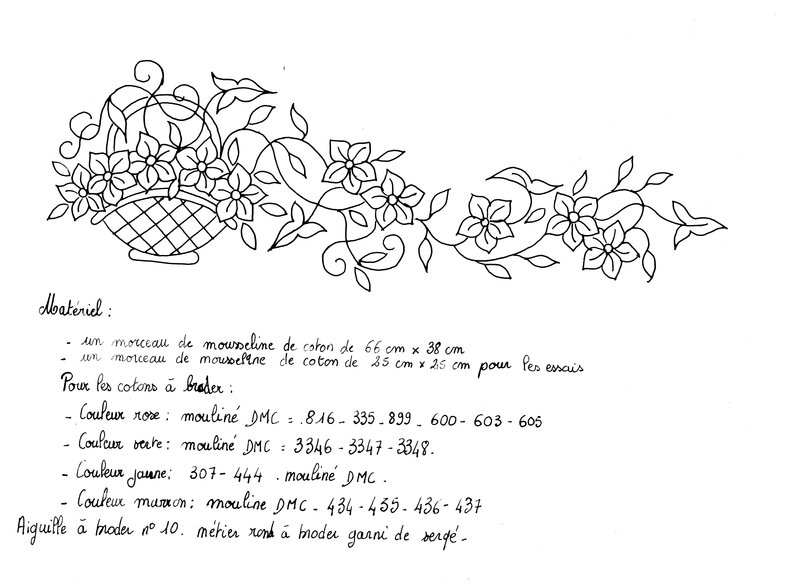 Matériel :
- un morceau de mousseline de coton de 66 cm x 38 cm
- un morceau de mousseline de coton de 25 cm x 25 cm pour les essais
Pour les cotons à broder :
- Couleur rose : mouliné DMC = .816 - 335 - 899 - 600 - 603 - 605
- Couleur verte : mouliné DMC = 3346 - 3347 - 3348.
- Couleur jaune ; 307 - 444 . mouliné DMC .
- Couleur marron ; mouline DMC - 434 - 435 - 436 - 437
Aiguille à broder n° 10. métier rond à broder garni de sergé -